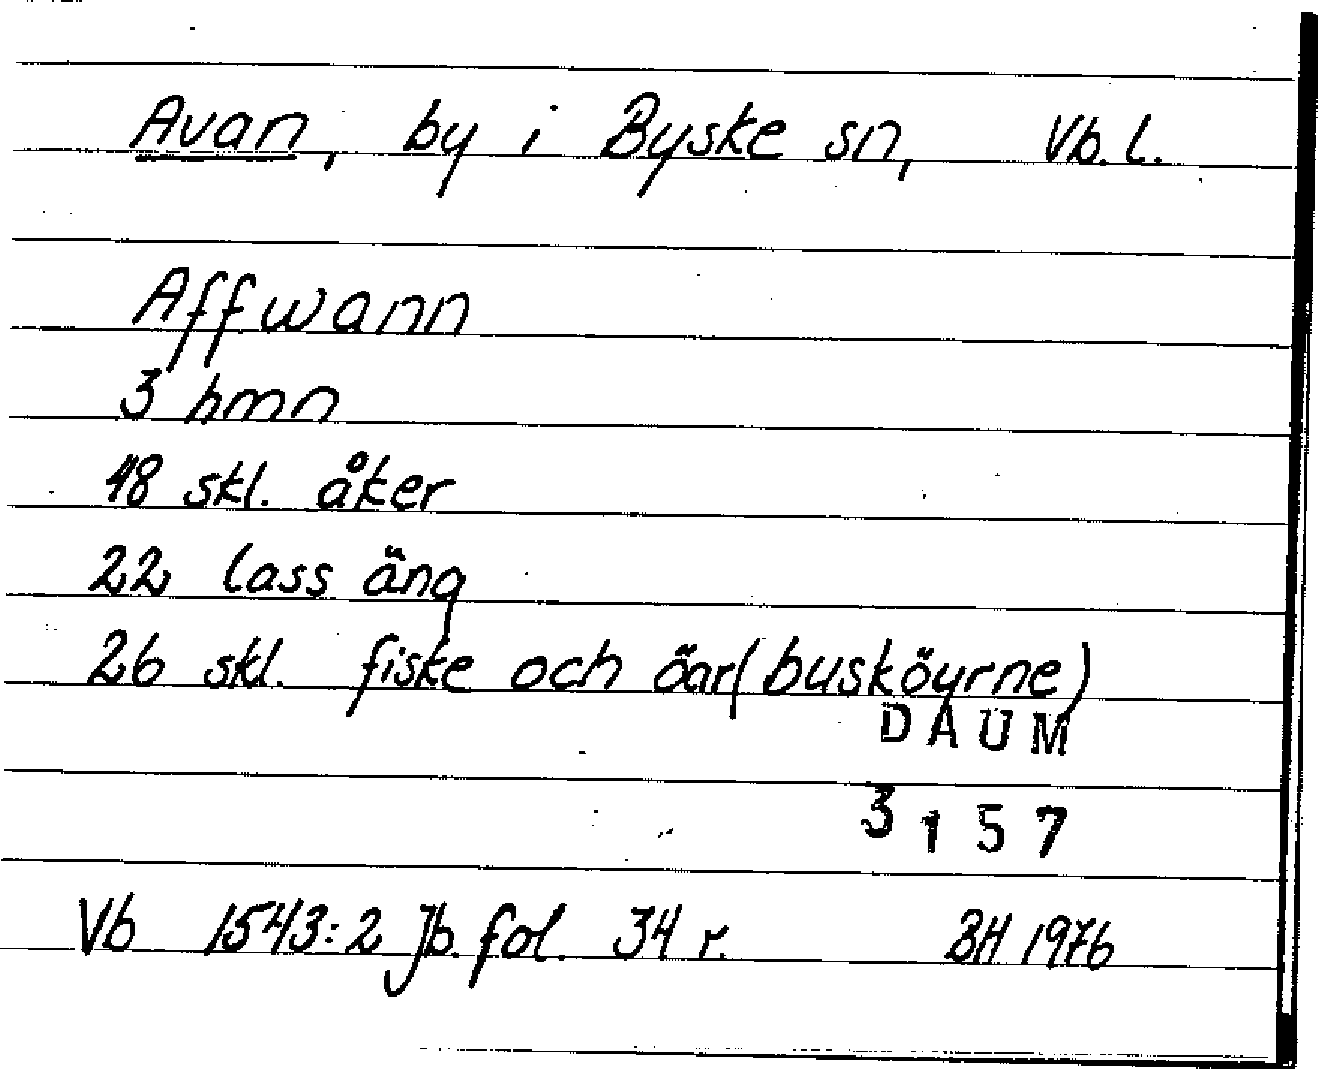 Avan, by i Byske sn, Vb. l.
Affwann
3 hmn
48 skl. åker
22 lass äng
26 skl. fiske och öar (busköyrne)
DAUM
3157
Vb 1543:2 Jb. fol. 34 r. BH 1976